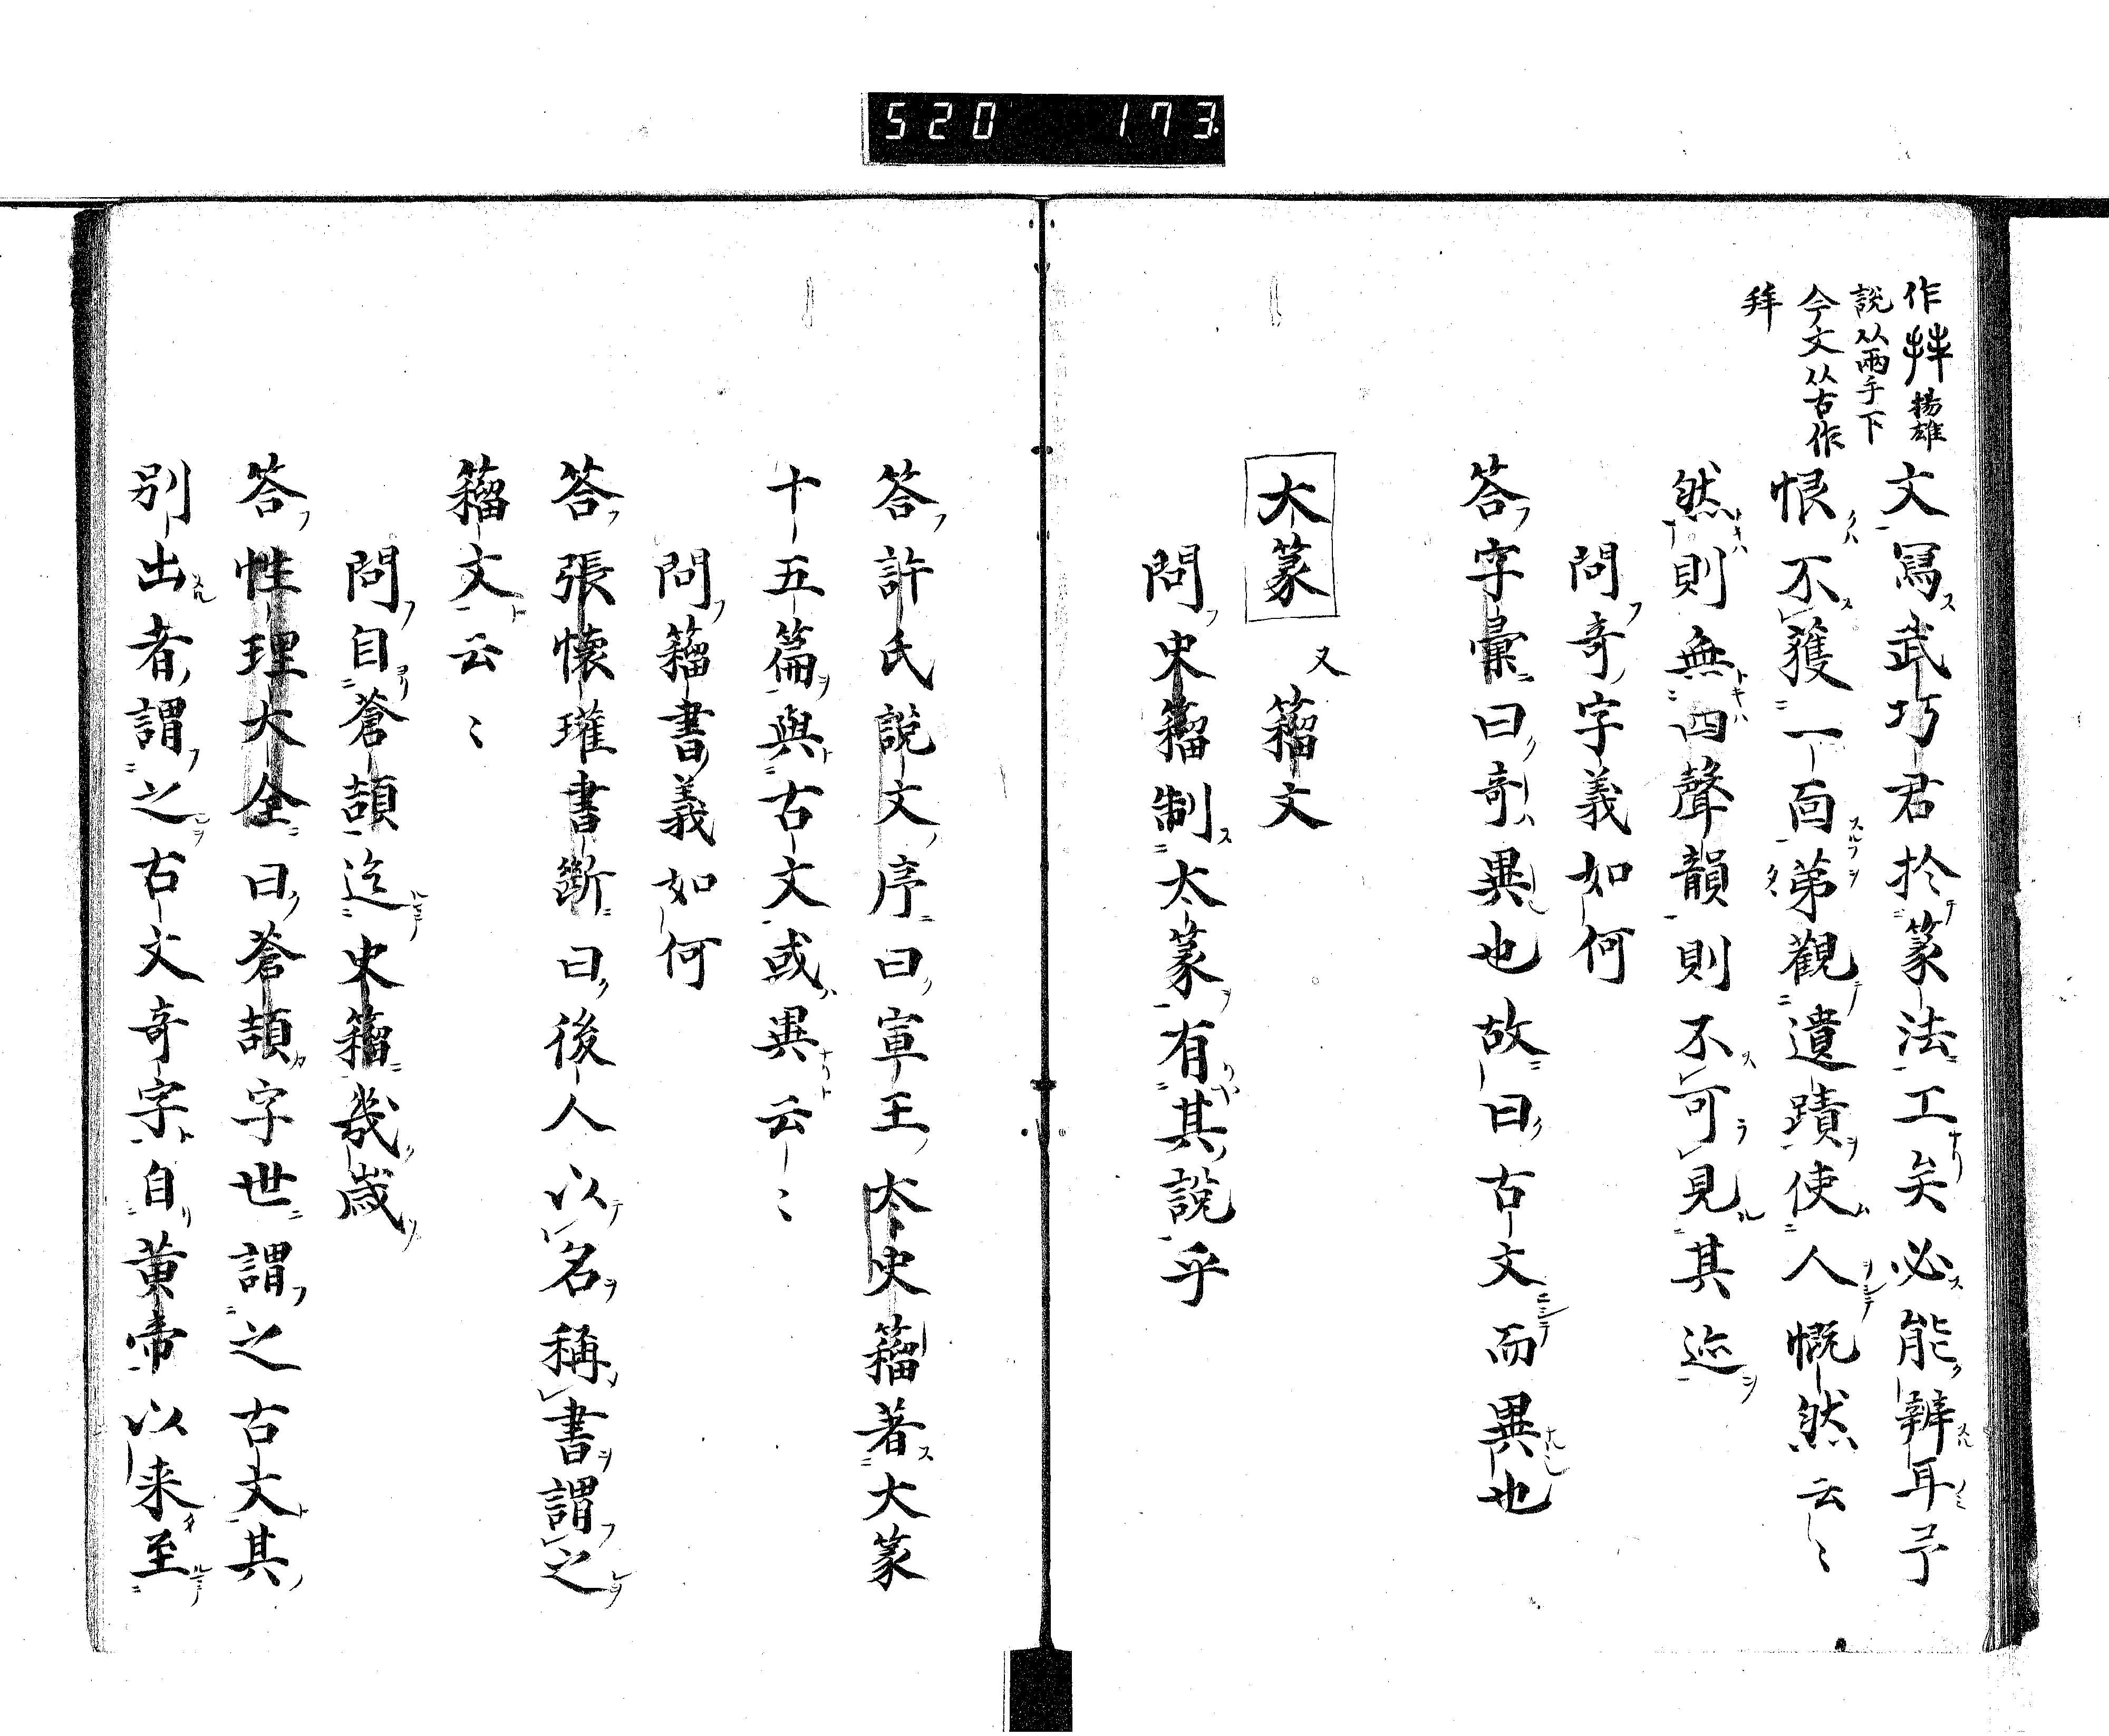 520 173
作𢫶揚雄
説从兩手下
今文从古作
拜
文寫武巧君於篆法工矣必能辨耳予
恨不獲一面弟觀遺蹟使人慨然云〻
然則無四聲韻則不可見其迹
問奇字義如何
答字彙曰奇異也故曰古文而異也
大篆 又籀文
問史籀制大篆有其說乎
答許氏說文序曰宣王太史籀著大篆
十五篇與古文或異云〻
問籀書義如何
答張懷瓘書斷曰後人以名稱書謂之
籀文云〻
問自蒼頡迄史籀幾歲
答性理大全曰蒼頡字世謂之古文其
別出者謂之古文奇字自黃帝以来至